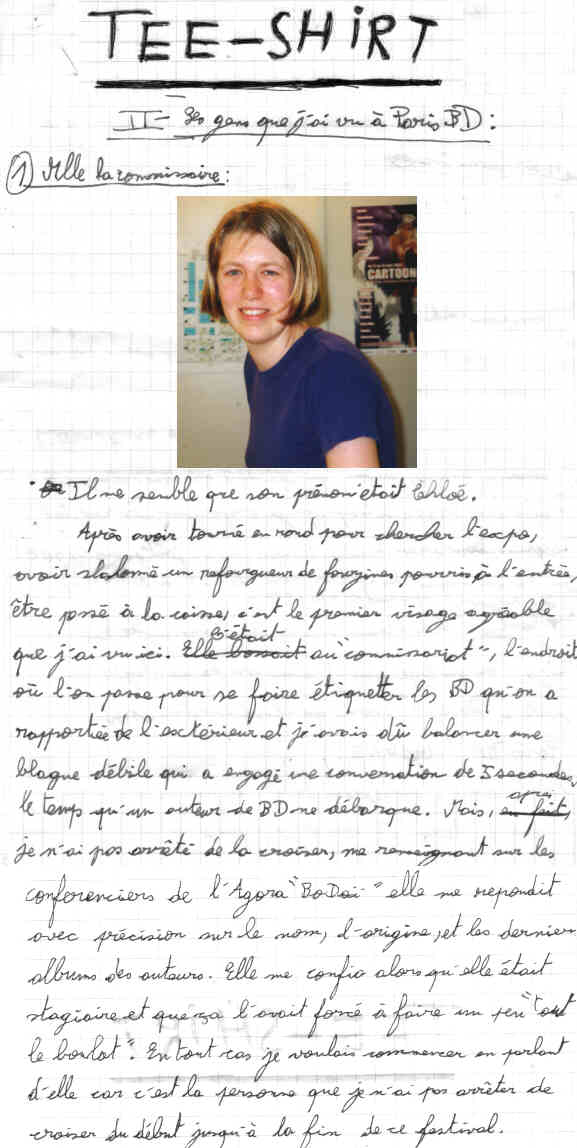 TEE-SHiRT
II- Les gens que j'ai vu à Paris BD :
1) Mlle la commissaire :
CARTOON
Il me semble que son prénom était Chloé.
Après avoir tourné en rond pour chercher l'expo,
avoir slalomé un refourgueur de fanzines pourris à l'entrée,
être passé à la caisse, c'est le premier visage agréable
que j'ai vu ici. C'était au "commissariat", l'endroit
où l'on passe pour se faire étiquetter les BD qu'on a
rapportée de l'extérieur et j'avais dû balancer une
blague débile qui a engagé une conversation de 5 secondes,
le temps qu'un auteur de BD ne débarque. Mais, après,
je n'ai pas arrêté de la croiser, me renseignant sur les
conferenciers de l'Agora "BoDoï" elle me repondit
avec précision sur le nom, l'origine, et les derniers
albums des auteurs. Elle me confia alors qu'elle était
stagiaire et que ça l'avait forcé à faire un peu "tout
le boulot". En tout cas je voulais commencer en parlant
d'elle car c'est la personne que je n'ai pas arrêter de
croiser du début jusqu'à la fin de ce festival.